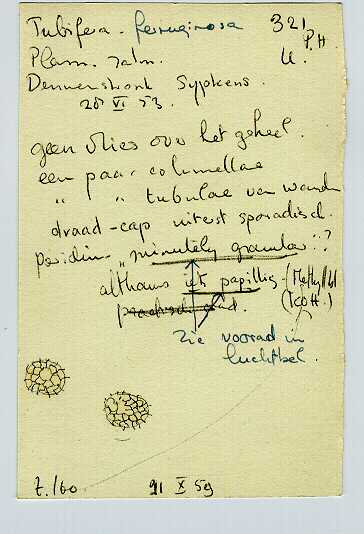 Tubifera. ferruginosa 321
P.H
Plann. Satn. U.
Dennenstronk Sypkens.
28 VI 53.
geen vlies over het geheel.
een paar columellae
" " tubulae van wanden
draad-cap uiterst sporadisch.
peridin- "minutely granular"?
althans papillig (Methylbl
(KOH.)
Zie voorad in
luchtbel.
t./60 21 X 59